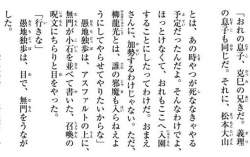 「おれの息子、克巳の兄きだ。義理
の息子も同じだ。それに、松本梢山
とは、あの時やつが死ななきゃやる
予定だったんだよ。そんなわけでよ、
ほっとけなくて、おれもここへ入園
することにしたってわけだ。おまえ
さんに、加勢するわけじゃない。ただ、
柳龍光には、誰の邪魔も入らねえよ
うにしてやらせてやりたいからな」
愚地独歩は、アスファルトの上に、
無門が小石を並べて書いた、召喚の
呪文にちらりと目をやった。
「行きな」
愚地独歩は、目で、無門をうなが
した。